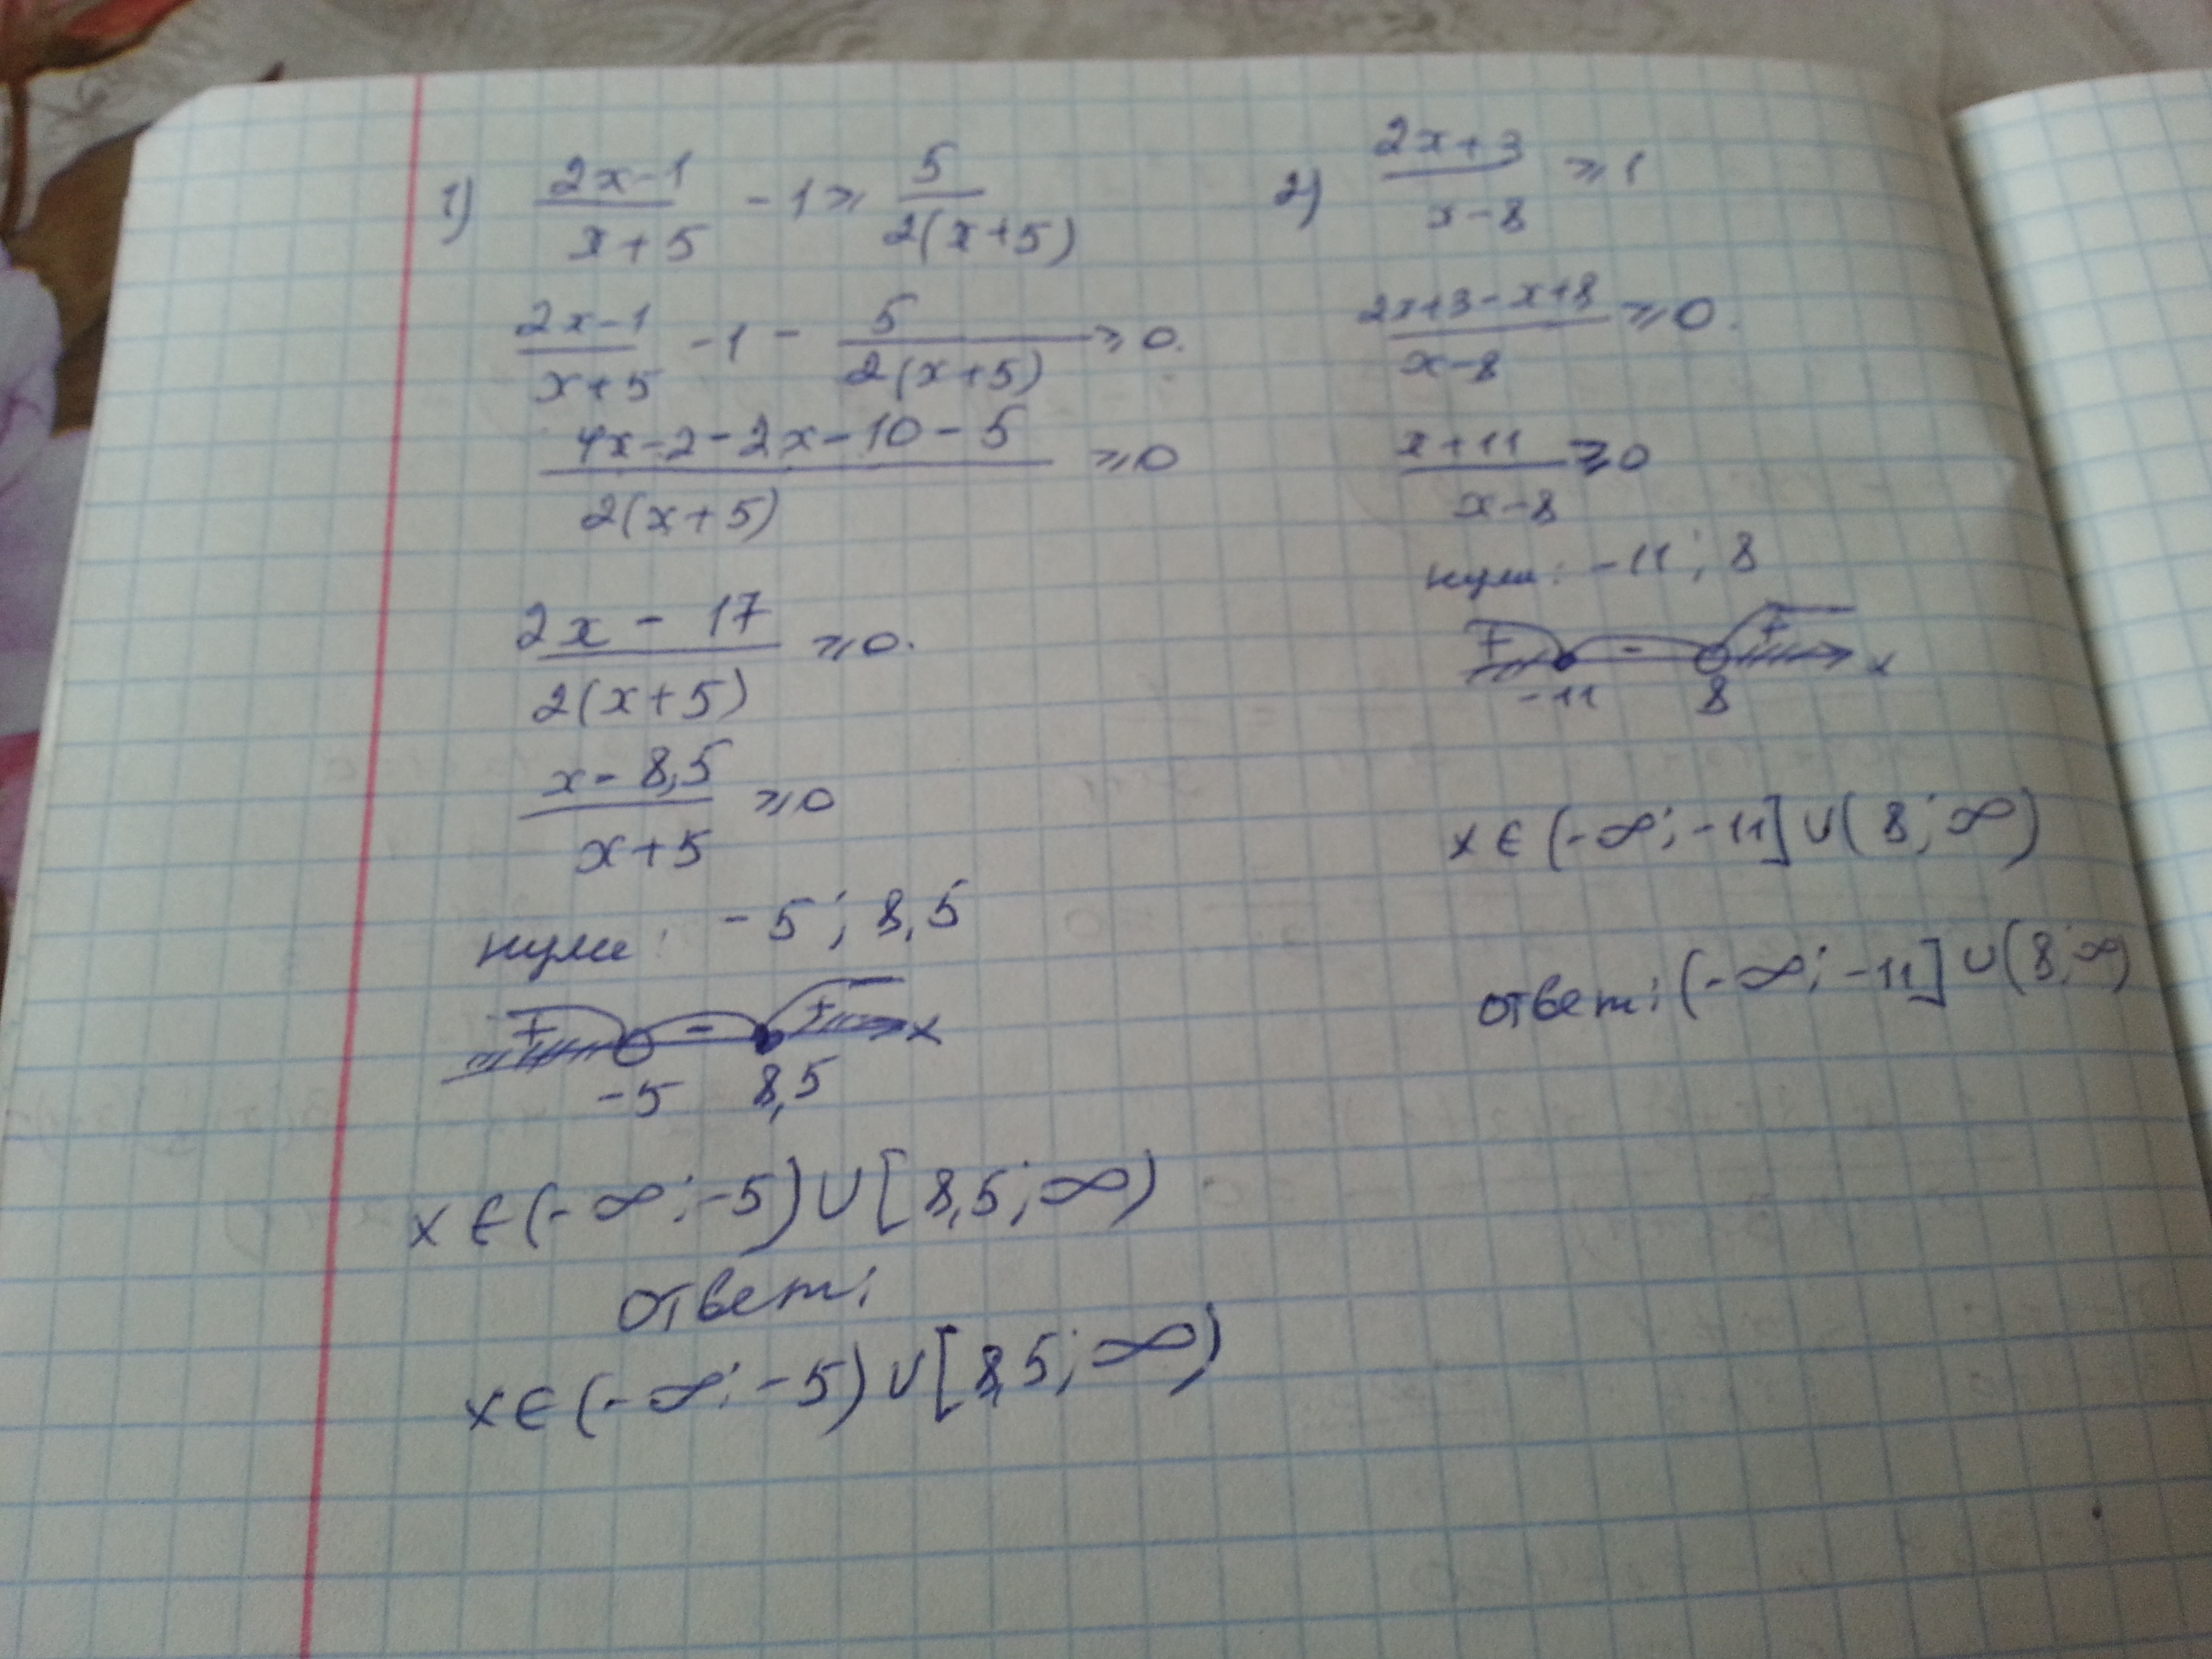 1) (2x-1)/(x+5) -1 ⩾ 5/(2(x+5))
(2x-1)/(x+5) -1 - 5/(2(x+5)) ⩾ 0.
(4x-2-2x-10-5)/(2(x+5)) ⩾ 0
(2x-17)/(2(x+5)) ⩾ 0.
(x-8,5)/(x+5) ⩾ 0
нули: -5; 8,5
+ - + x
-5 8,5
x ∈ (-∞; -5) ∪ [8,5; ∞)
ответ:
x ∈ (-∞; -5) ∪ [8,5; ∞)
2) (2x+3)/(x-8) ⩾ 1
(2x+3-x+8)/(x-8) ⩾ 0.
(x+11)/(x-8) ⩾ 0
нули: -11; 8
+ - + x
-11 8
x ∈ (-∞; -11] ∪ (8; ∞)
ответ: (-∞; -11] ∪ (8; ∞)